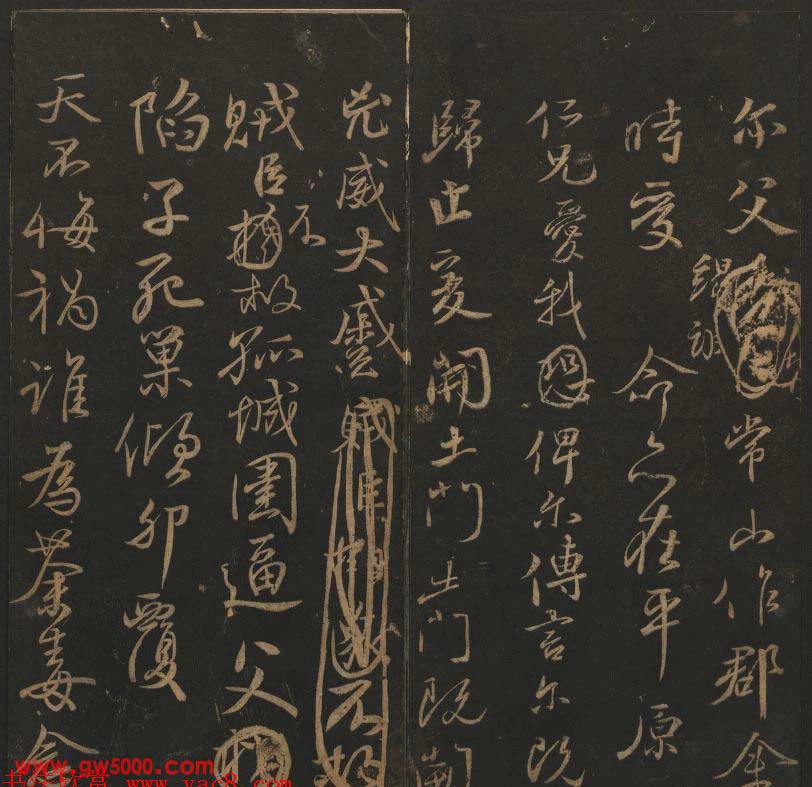 尔父竭誠常山作郡余
時受命亦在平原
仁兄愛我恐俾尔傳言尔既
歸止爰開土門土門既開
兇威大蹙賊臣擁衆不救
賊臣擁不救孤城圍逼父
陷子死巢傾卵覆
天不悔禍誰為荼毒念
www.gw5000.com
书法欣赏 www.yac8.com